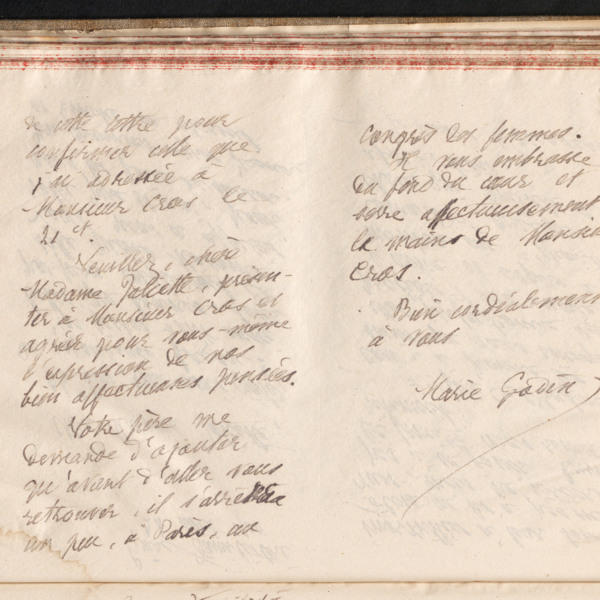 de cette lettre pour
confirmer celle que
j'ai adressée à
Monsieur Cros le
21 ct.
Veuillez, chère
Madame Juliette, présen-
ter à Monsieur Cros et
agréer pour vous-même
l'expression de nos
bien affectueuses pensées.
Votre père me
demande d'ajouter
qu'avant d'aller vous
retrouver, il s'arrêtera
un peu, à Paris, au
congrès des femmes.
Il vous embrasse
du fond du cœur et
serre affectueusement
la mains de Monsie
Cros.
Bien cordialement
à vous
Marie Godin